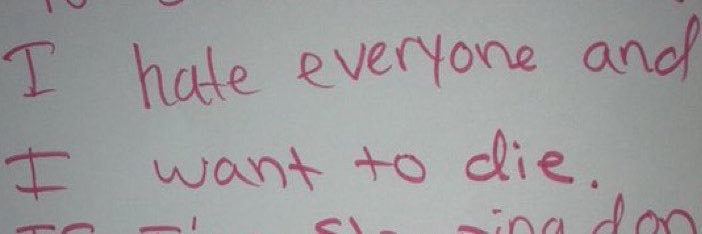 I hate everyone and
I want to die.